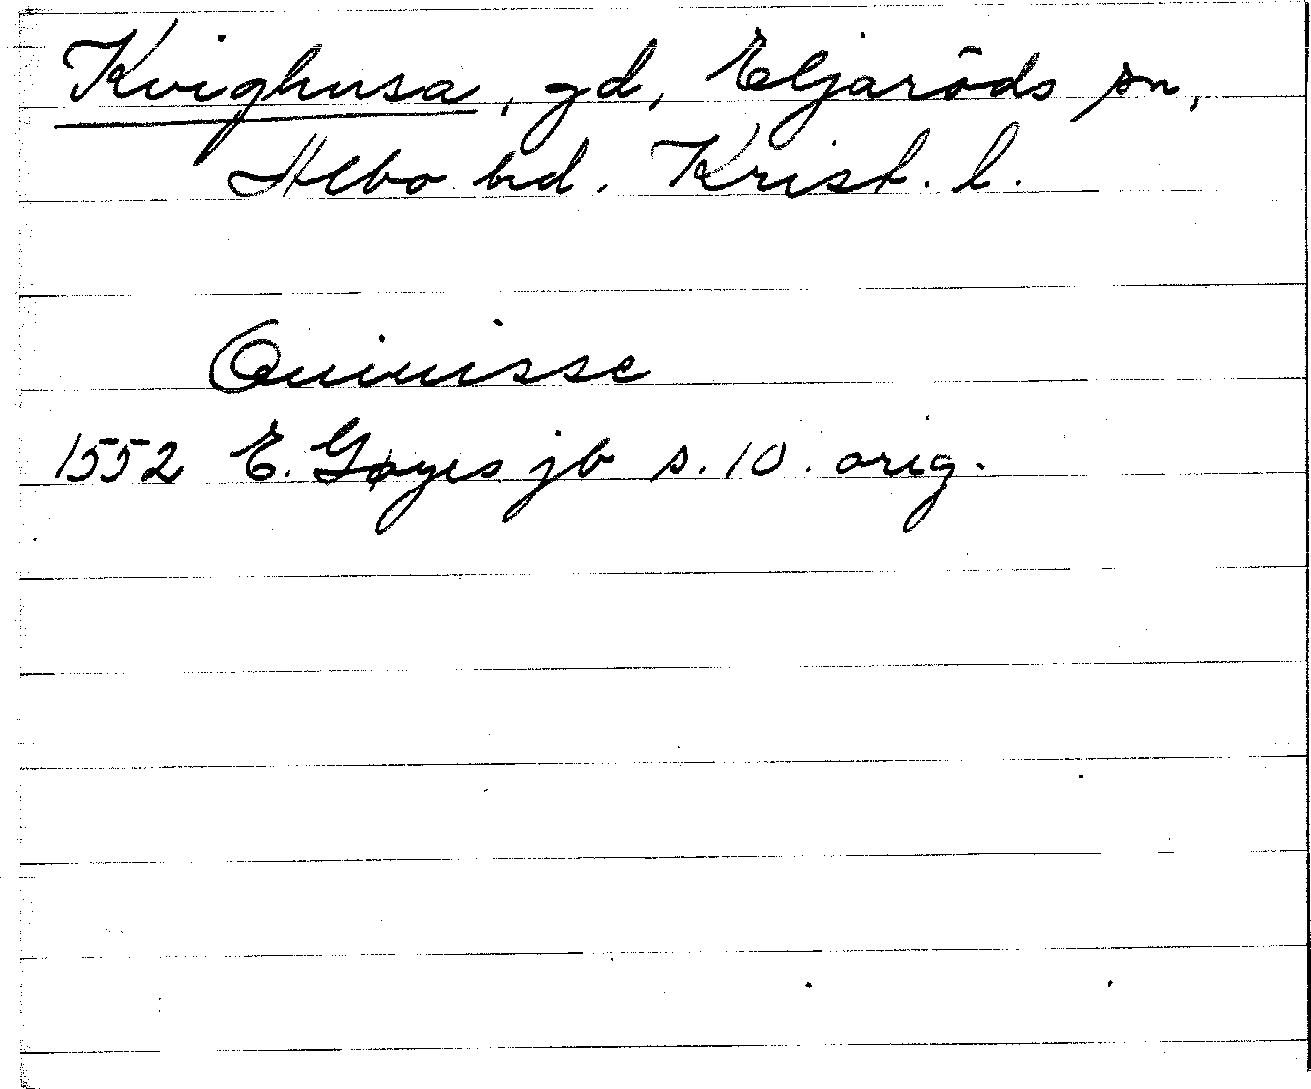 Kvighusa, gd, Eljaröds sn,
Albo hd. Krist. l.
Quiuisse
1552 E. Gøyes jb s. 10. orig.